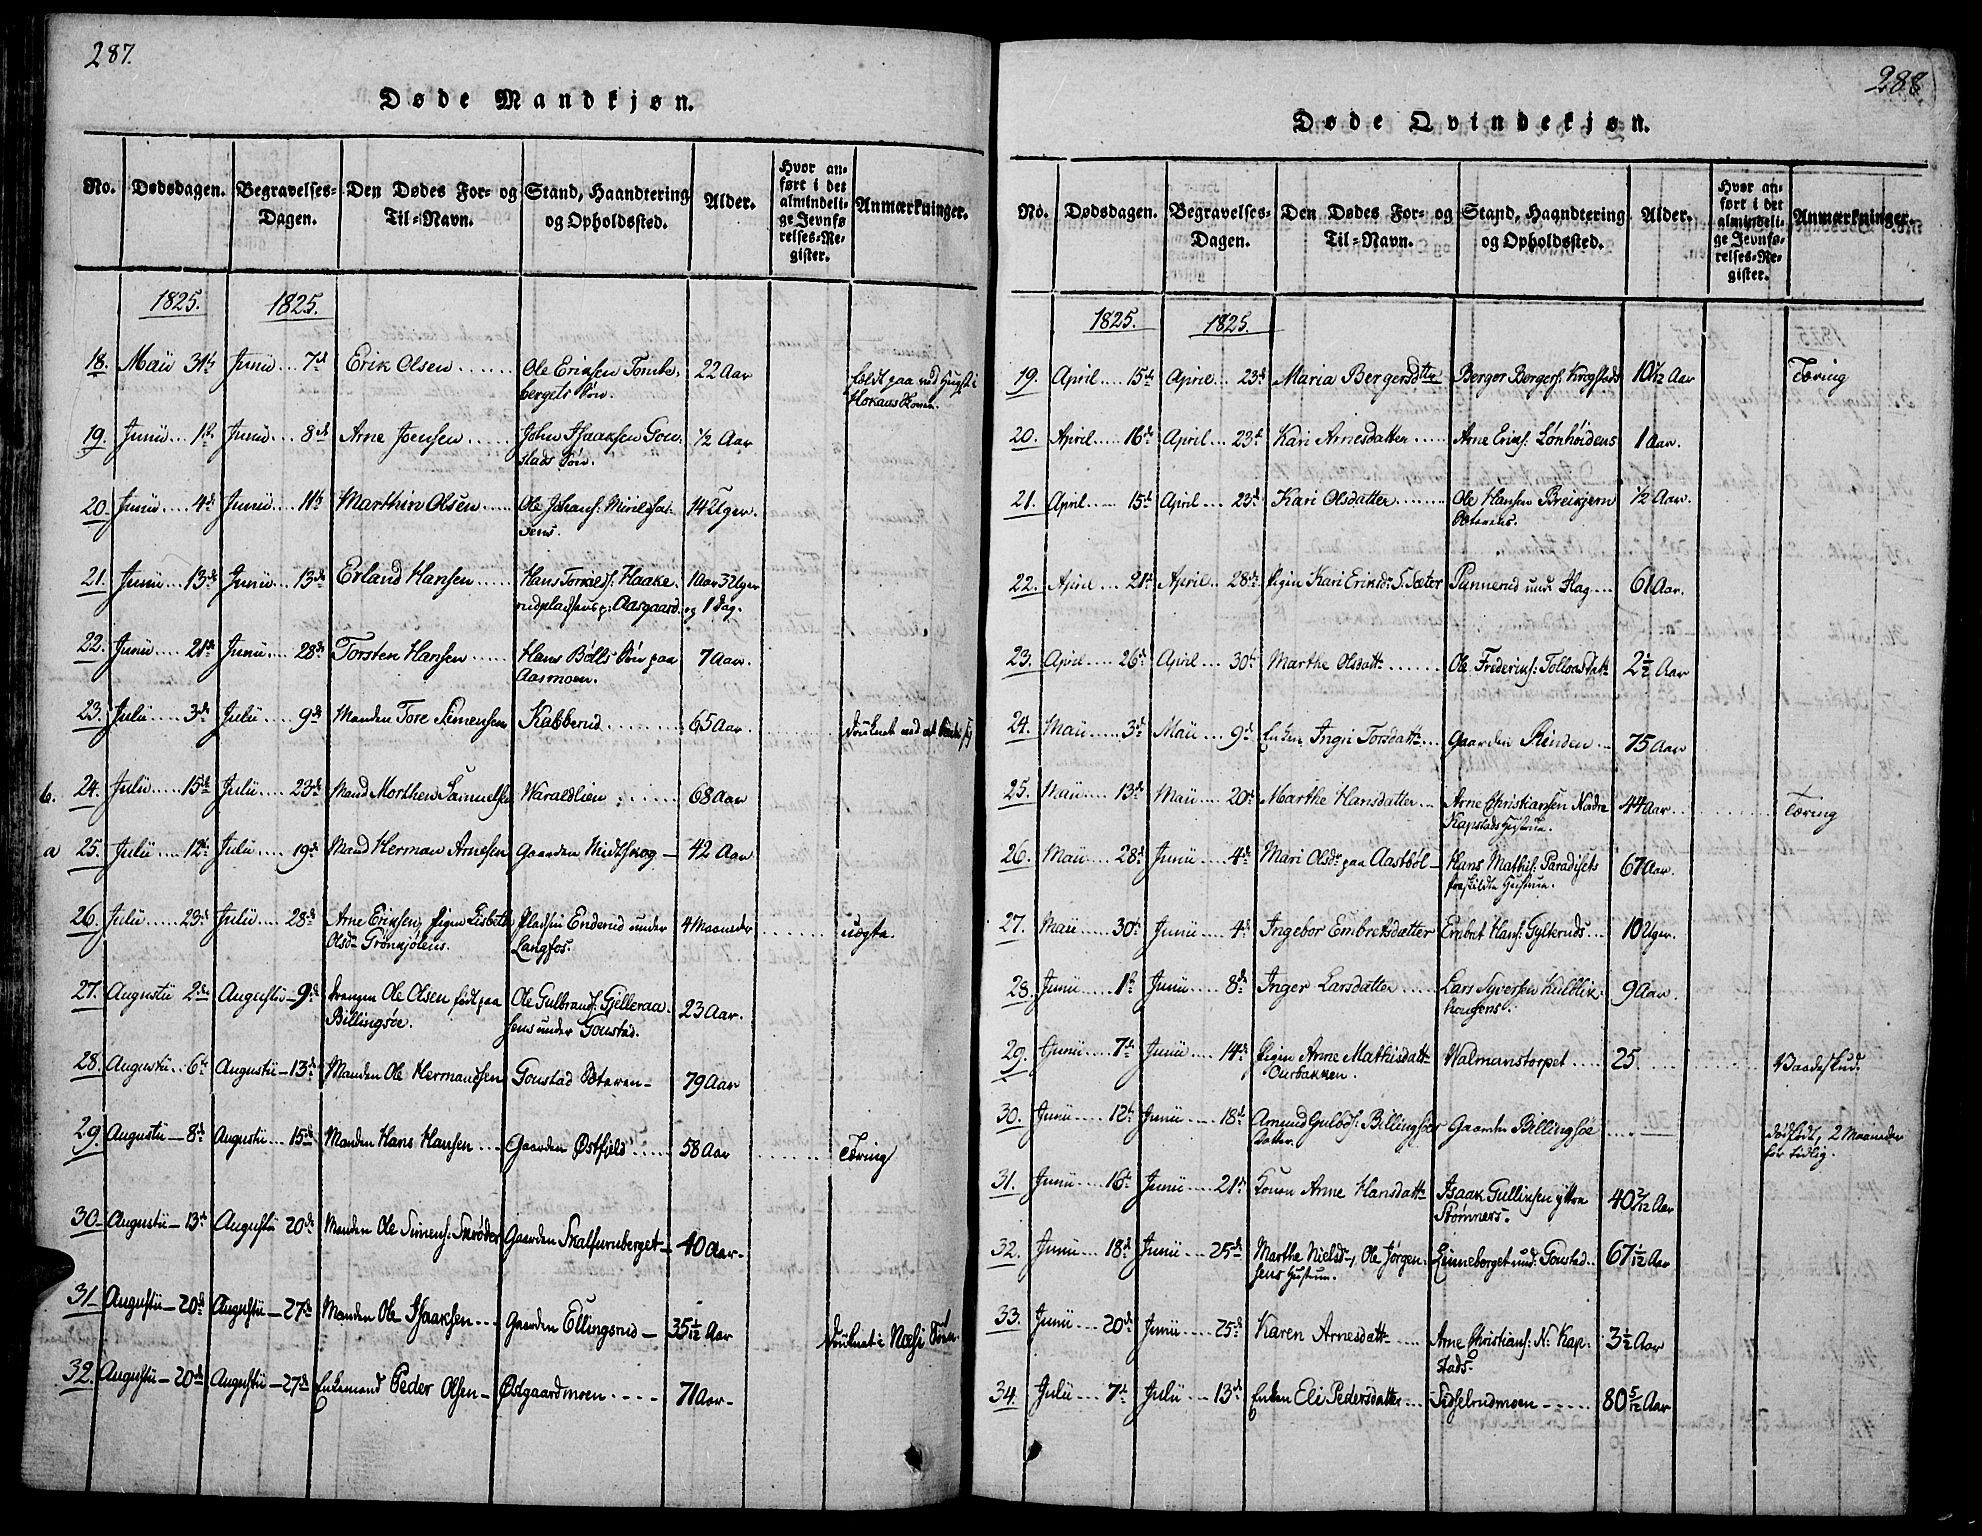 287.
Døde Mandkjøn.
No. Dødsdagen. Begravelses-Dagen. Den Dødes For- og Til-Navn. Stand, Haandtering og Opholdssted. Alder. Hvor anført i det almindelige Jevnførelses-Register. Anmærkninger.
1825. 1825.
18. Maii 31te Junii 7de Erik Olsen Ole Eriksen
bergets Søn. 22 Aar
19. Junii 1ste Junii 8de Arne Jonsen John Isaaksen Gon-
stads Søn. ½ Aar
20. Junii 4de Junii 11te Marthin Olsen Ole Johans:
sens. 14 Uger.
21. Junii 13de Junii 13de Erland Hansen Hans Torkilds: Haake-
rudpladsens p: Aasgaard. 1 Aar 3 Uger og 1 Dag.
22. Junii 21de Junii 28de Torsten Hansen Hans Bølls Søn paa
Aasmoen. 7 Aar.
23. Julii 3de Julii 9de Manden Tore Simensen Kabberud 65 Aar druknet ved
b. 24. Julii 15de Julii 23de Mand Morthen Samuelsen Waraldlien 68 Aar
a 25. Julii 12te Julii 19de Mand Herman Arnesen Gaarden Midtskog 42 Aar
26. Julii 23de Julii 28de Arne Eriksen, Pigen Lisbeth
Olsd: Grønkjølens. Pladsen Enderud under
Langfos. 4 Maaneder uægte.
27. Augustii 2den Augustii 9de Drengen Ole Olsen født paa
Billingsøe. Ole Gulbrans: Gjelleraa-
sens under Gonstad. 23 Aar.
28. Augustii 6te Augustii 13de Manden Ole Hermandsen Gonstad Østeren 79 Aar
29. Augustii 8de Augustii 15de Manden Hans Hansen Gaarden Østfjeld 58 Aar Tæring
30. Augustii 13de Augustii 20de Manden Ole Simens: Skrøder Gaarden Skalfuruberget 40 Aar.
31. Augustii 20de Augustii 27de Manden Ole Isaaksen Gaarden Ellingsrud 35 1/12 Aar druknet i Næsi
32. Augustii 20de Augustii 27de Enkemand Peder Olsen Østgaardmoen 71 Aar.
288
Døde Qvindekjøn.
No. Dødsdagen. Begravelses-Dagen. Den Dødes For- og Til-Navn. Stand, Haandtering og Opholdssted. Alder. Hvor anført i det almindelige Jevnførelses-Register. Anmærkninger.
1825. 1825.
19. April 15de April 23de Maria Bergersdttr Berger Bergers: Krogstads Aar Tæring
20. April 16de April 23de Kari Arnesdatter Arne Eriks: Lønhøidens 1 Aar.
21. April 15de April 23de Kari Olsdatter Ole Hansen Breikjern
Østerens. ½ Aar.
22. April 21de April 28de Pigen Kari Eriksd: S. Sæter Punnerud und: Hag 61 Aar.
23. April 26de April 30te Marthe Olsdatt: Ole Frederiks: 2½ Aar
24. Maii 3de Maii 9de Enken Ingri Torsdatt: Gaarden Rinden 75 Aar
25. Maii 13de Maii 20de Marthe Hansdatter Arne Christiansen Nordre
Kapstads Hustrue. 44 Aar Tæring
26. Maii 28de Junii 4de Mari Olsd: paa Aastbøl Hans Mathis: Paradisets
fraskildte Hustrue. 67 Aar.
27. Maii 30te Junii 4de Ingebor Embretsdatter Embret Hans: Gylterud 10 Uger.
28. Junii 1ste Junii 8de Inger Larsdatter Lars Syversen Kulblik-
haugens. 9 Aar.
29. Junii 7de Junii 14de Pigen Anne Mathisdatt:
Ourbakken. Walmanstorpet 25. Vaadeskud.
30. Junii 12te Junii 18de Amund Gulbds: Billingsøes
Datter. Gaarden Billingsøe dødfødt, 2 Maaneder
for tidlig.
31. Junii 16de Junii 21de Konen Anne Hansdatt: Isaak Gulliksen ytre
Strømners. 40 2/12 Aar
32. Junii 18de Junii 25de Marthe Nields-, Ole Jørgen-
sens Hustrue. Linneberget und: Gonstad 67 1/12 Aar
33. Junii 20de Junii 25de Karen Arnesdatt: Arne Christians: N. Kap-
stads. 3½ Aar
34. Julii 7de Julii 13de Enken Eli Pedersdatter Sidselrudmoen 80 5/12 Aar